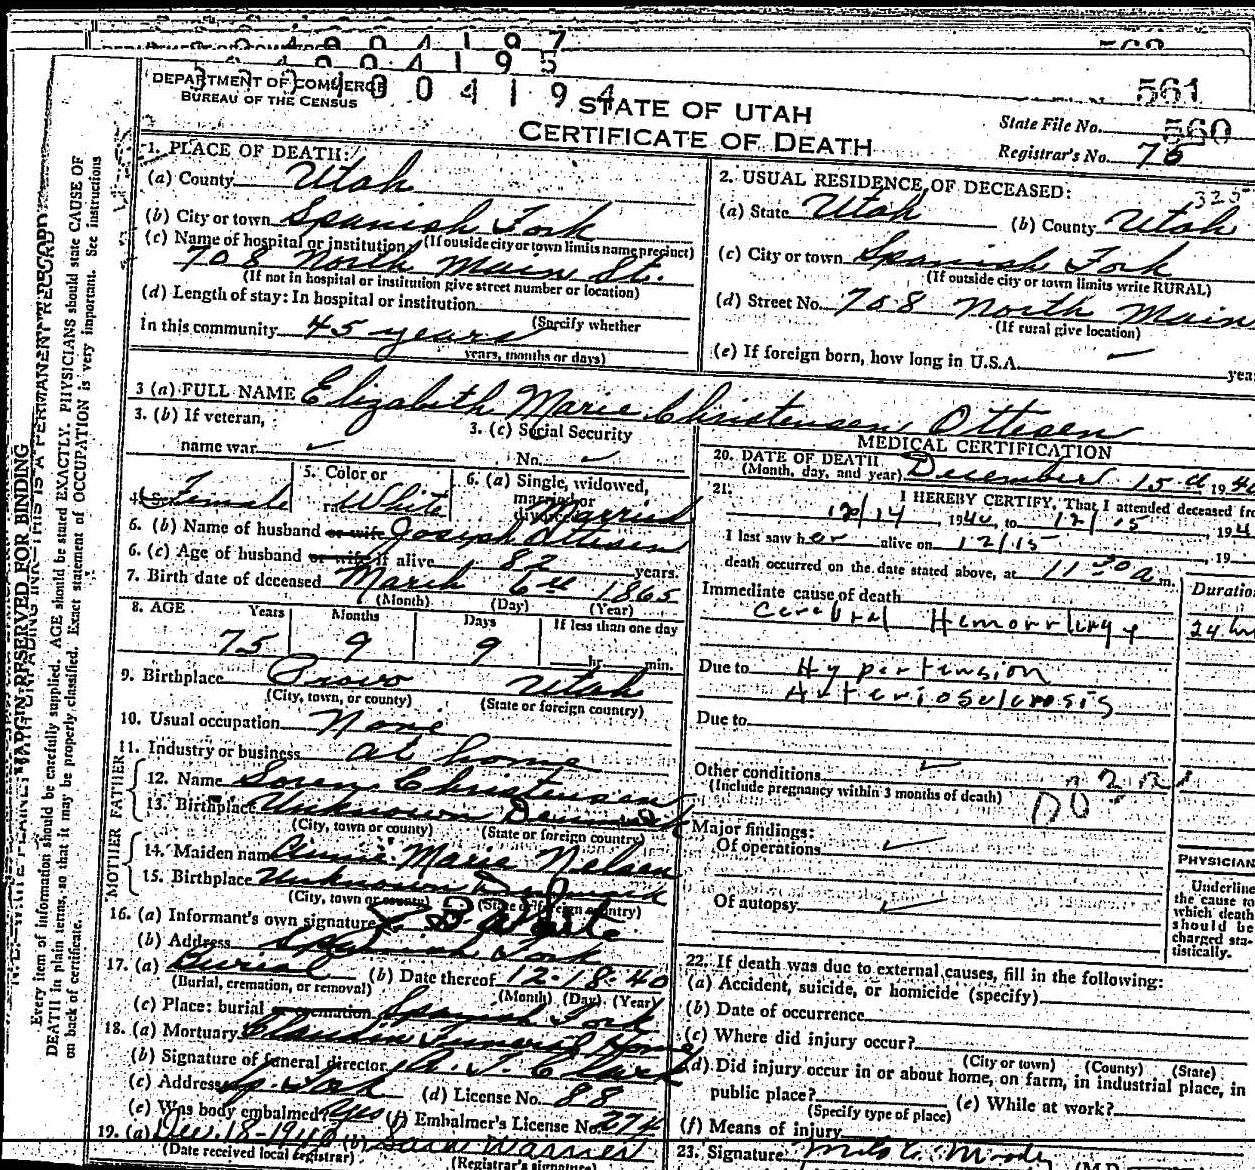 561
DEPARTMENT OF COMMERCE
BUREAU OF THE CENSUS
STATE OF UTAH
CERTIFICATE OF DEATH
State File No. 560
Registrar's No. 75
1. PLACE OF DEATH:
(a) County Utah
(b) City or town Spanish Fork
(If outside city or town limits name precinct)
(c) Name of hospital or institution:
708 North Main St.
(If not in hospital or institution give street number or location)
(d) Length of stay: In hospital or institution
(Specify whether
In this community 45 years
years, months or days)
2. USUAL RESIDENCE OF DECEASED:
325
(a) State Utah (b) County Utah
(c) City or town Spanish Fork
(If outside city or town limits write RURAL)
(d) Street No. 708 North Main
(If rural give location)
(e) If foreign born, how long in U.S.A. ✓
3 (a) FULL NAME Elizabeth Marie Christensen Ottesen
3. (b) If veteran,
name war ✓
3. (c) Social Security
No. ✓
4. Sex Female
5. Color or
race White
6. (a) Single, widowed,
married or
divorced Married
6. (b) Name of husband or wife Joseph Ottesen
6. (c) Age of husband or wife if alive 82 years.
7. Birth date of deceased March 6th 1865
(Month) (Day) (Year)
8. AGE Years Months Days If less than one day
75 9 9 hr. min.
9. Birthplace Provo Utah
(City, town, or county) (State or foreign country)
10. Usual occupation None
11. Industry or business at home
FATHER
12. Name Soren Christensen
13. Birthplace Unknown Denmark
(City, town or county) (State or foreign country)
MOTHER
14. Maiden name Annie Marie Nelsen
15. Birthplace Unknown Denmark
(City, town or county) (State or foreign country)
16. (a) Informant's own signature
(b) Address Spanish Fork
17. (a) Burial (b) Date thereof 12-18-40
(Burial, cremation, or removal) (Month) (Day) (Year)
(c) Place: burial or cremation Spanish Fork
18. (a) Mortuary Claudin Funeral Home
(b) Signature of funeral director A. J. Clark
(c) Address Sp. Fork (d) License No. 88
(e) Was body embalmed? Yes (f) Embalmer's License No. 274
19. (a) Dec. 18-1940 (b) Sara Warner
(Date received local registrar) (Registrar's signature)
MEDICAL CERTIFICATION
20. DATE OF DEATH
(Month, day, and year) December 15th 1940
21. I HEREBY CERTIFY, That I attended deceased fro
12/14, 1940, to 12/15, 194
I last saw her alive on 12/15, 19
death occurred on the date stated above, at 11:30 a m.
Immediate cause of death
Duration
Cerebral Hemorrhage
24 hrs
Due to Hypertension
Arteriosclerosis
Due to
Other conditions ✓
(Include pregnancy within 3 months of death)
Major findings:
Of operations ✓
Of autopsy ✓
PHYSICIAN
Underline
the cause to
which death
should be
charged sta-
tistically.
22. If death was due to external causes, fill in the following:
(a) Accident, suicide, or homicide (specify)
(b) Date of occurrence
(c) Where did injury occur?
(City or town) (County) (State)
(d) Did injury occur in or about home, on farm, in industrial place, in
public place? (e) While at work?
(Specify type of place)
(f) Means of injury
23. Signature Milo C. Moody (M.D.
MARGIN RESERVED FOR BINDING
Every item of information should be carefully supplied. AGE should be stated EXACTLY. PHYSICIANS should state CAUSE OF
DEATH in plain terms, so that it may be properly classified. Exact statement of OCCUPATION is very important. See instructions
on back of certificate.